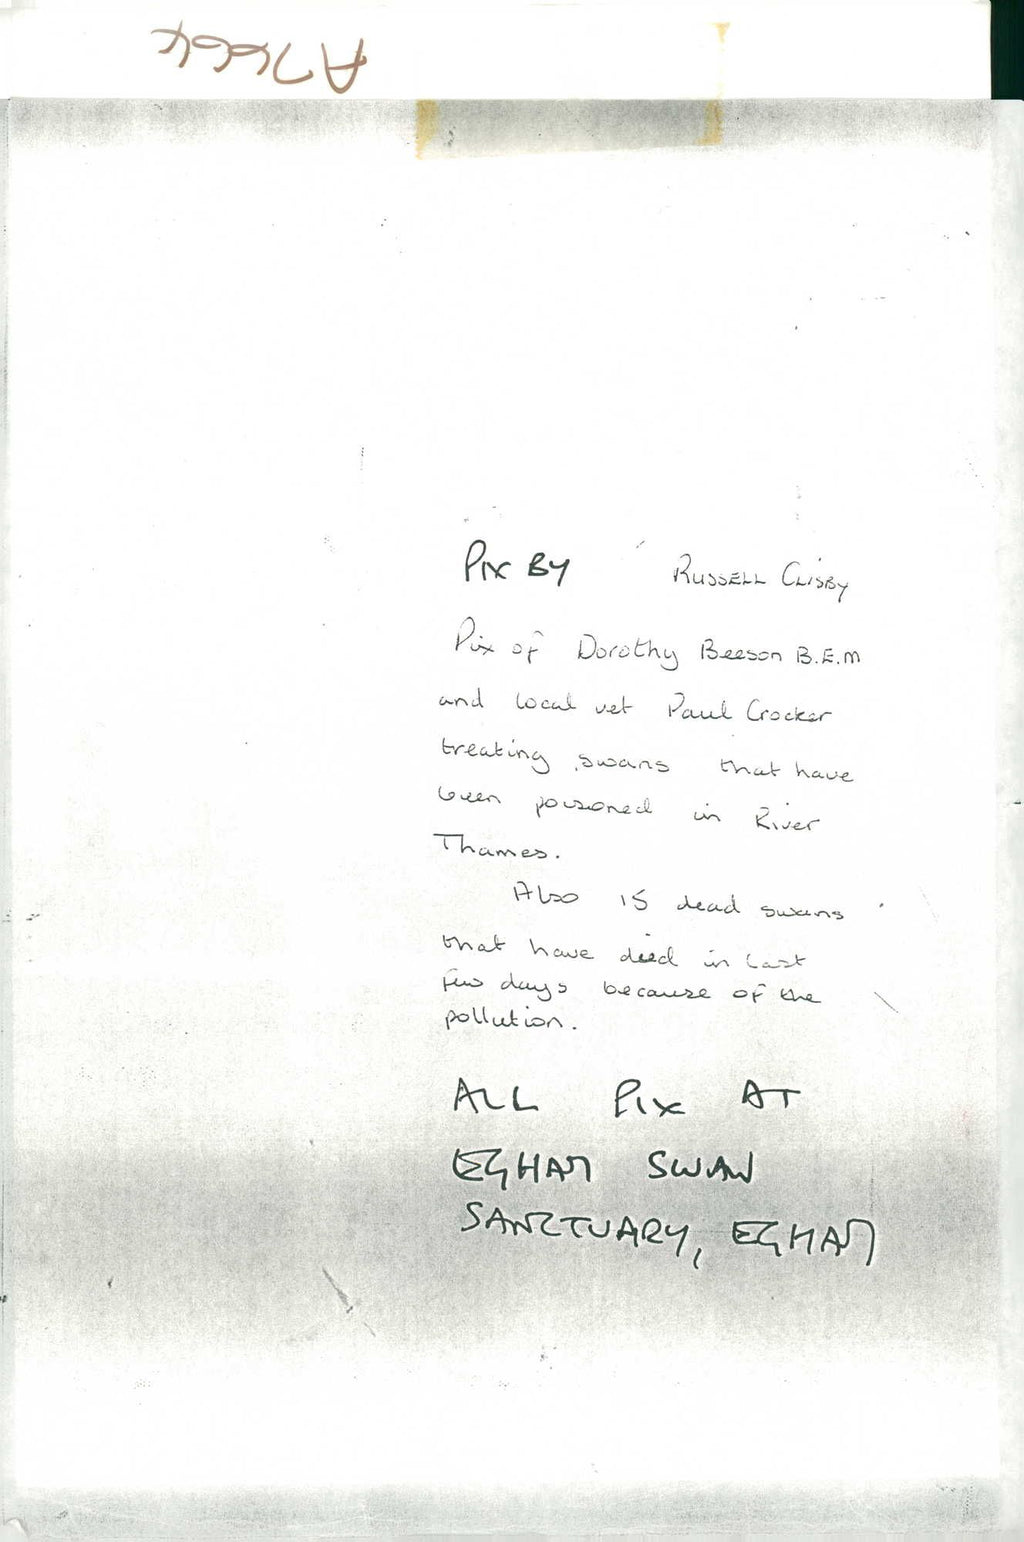 A7664
PIX BY RUSSELL CLISBY
Pix of Dorothy Beeson B.E.M
and local vet Paul Crocker
treating swans that have
been poisoned in River
Thames.
Also 15 dead swans
that have died in last
few days because of the
pollution.
ALL PIX AT
EGHAM SWAN
SANCTUARY, EGHAM